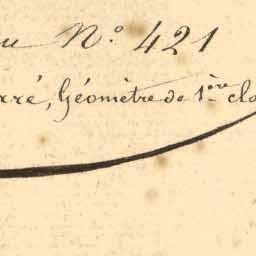 au N.° 421
rré, Géomètre de 1.ère cla